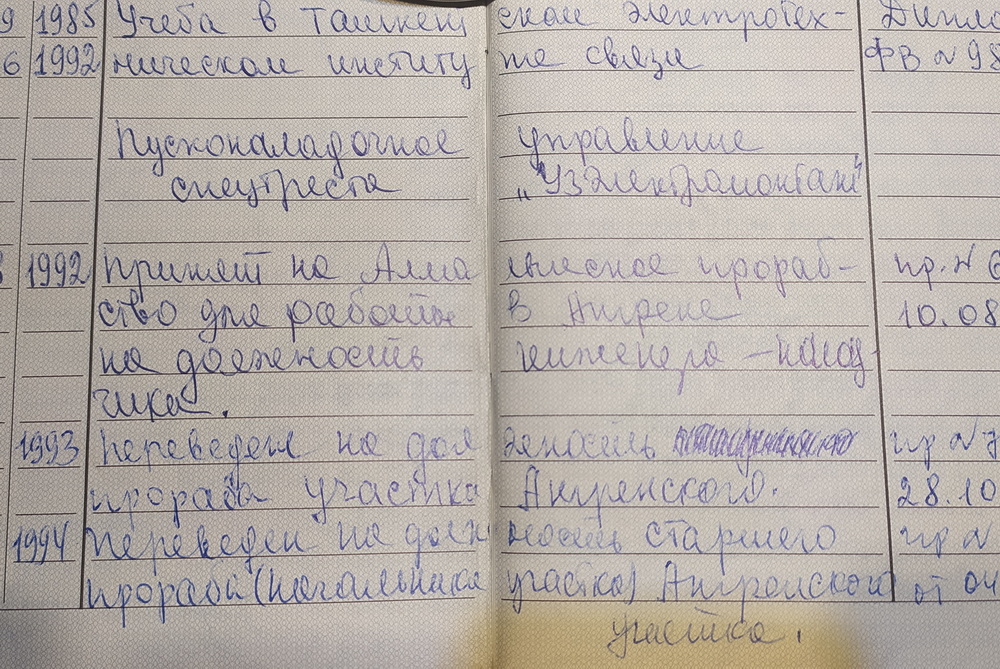 9 1985 Учеба в Ташкент ском электротех- Дипло
6 1992 ническом институ те связи ФВ N 98
Пусконаладочное управление
спецтреста „Узэлектромонтаж"
1992 Принят на Алма лыкское прораб- пр. N 6
ство для работы в Ангрене 10.08
на должность инженера - налад
чика.
1993 Переведен на дол жность пр N 7
прораба участка Ангренского. 28.10
1994 Переведен на долж ность старшего пр N
прораба (начальника участка) Ангренского от 04
участка.